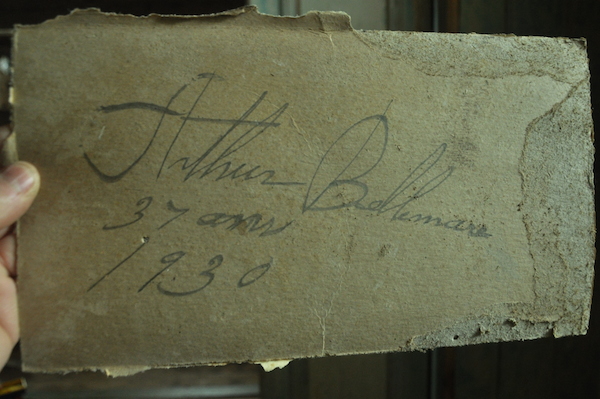 Arthur
37 ans
1930